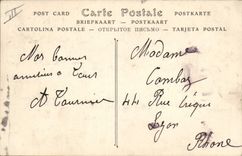 POST CARD Carte Postale POSTKARTE
BRIEFKAART POSTKORT
CARTOLINA POSTALE ОТКРЫТОЕ ПИСЬМО TARJETA POSTAL
Mes bonnes
amitiés à tous
A Tournier
Madame
Combaz
44 Rue
Lyon
Rhone